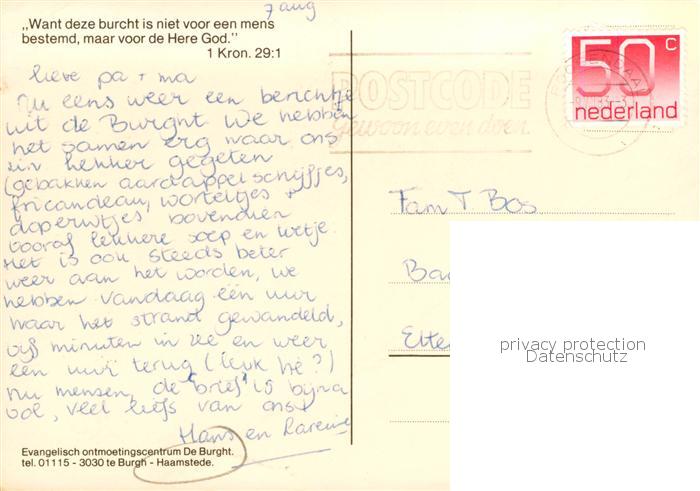 7 aug
„Want deze burcht is niet voor een mens
bestemd, maar voor de Here God.”
1 Kron. 29:1
lieve pa + ma
Nu eens weer een berichtje
uit de Burght. We hebben
het samen erg naar ons
zin lekker gegeten
(gebakken aardappelschijfjes,
fricandeau, worteltjes +
doperwtjes bovendien
vooraf lekkere soep en
Het is ook steeds beter
weer aan het worden, we
hebben vandaag één uur
naar het strand gewandeld,
vijf minuten in zee en weer
een uur terug (leuk hè?)
Nu mensen, de brief is bijna
vol, veel liefs van ons
Hans en
Evangelisch ontmoetingscentrum De Burght.
tel. 01115 - 3030 te Burgh - Haamstede.
POSTCODE
Gewoon even doen.
50 c
nederland
Fam T. Bos
Elte
privacy protection
Datenschutz